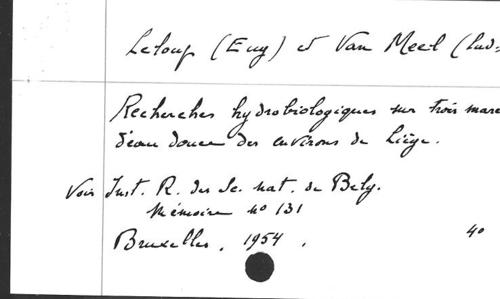 Leloup (Eug) et Van Meel (Lud=
Recherches hydrobiologiques sur trois mare
d'eau douce des environs de Liège.
Voir Inst. R. des Sc. nat. de Belg.
Mémoire no 131
Bruxelles, 1954. 40